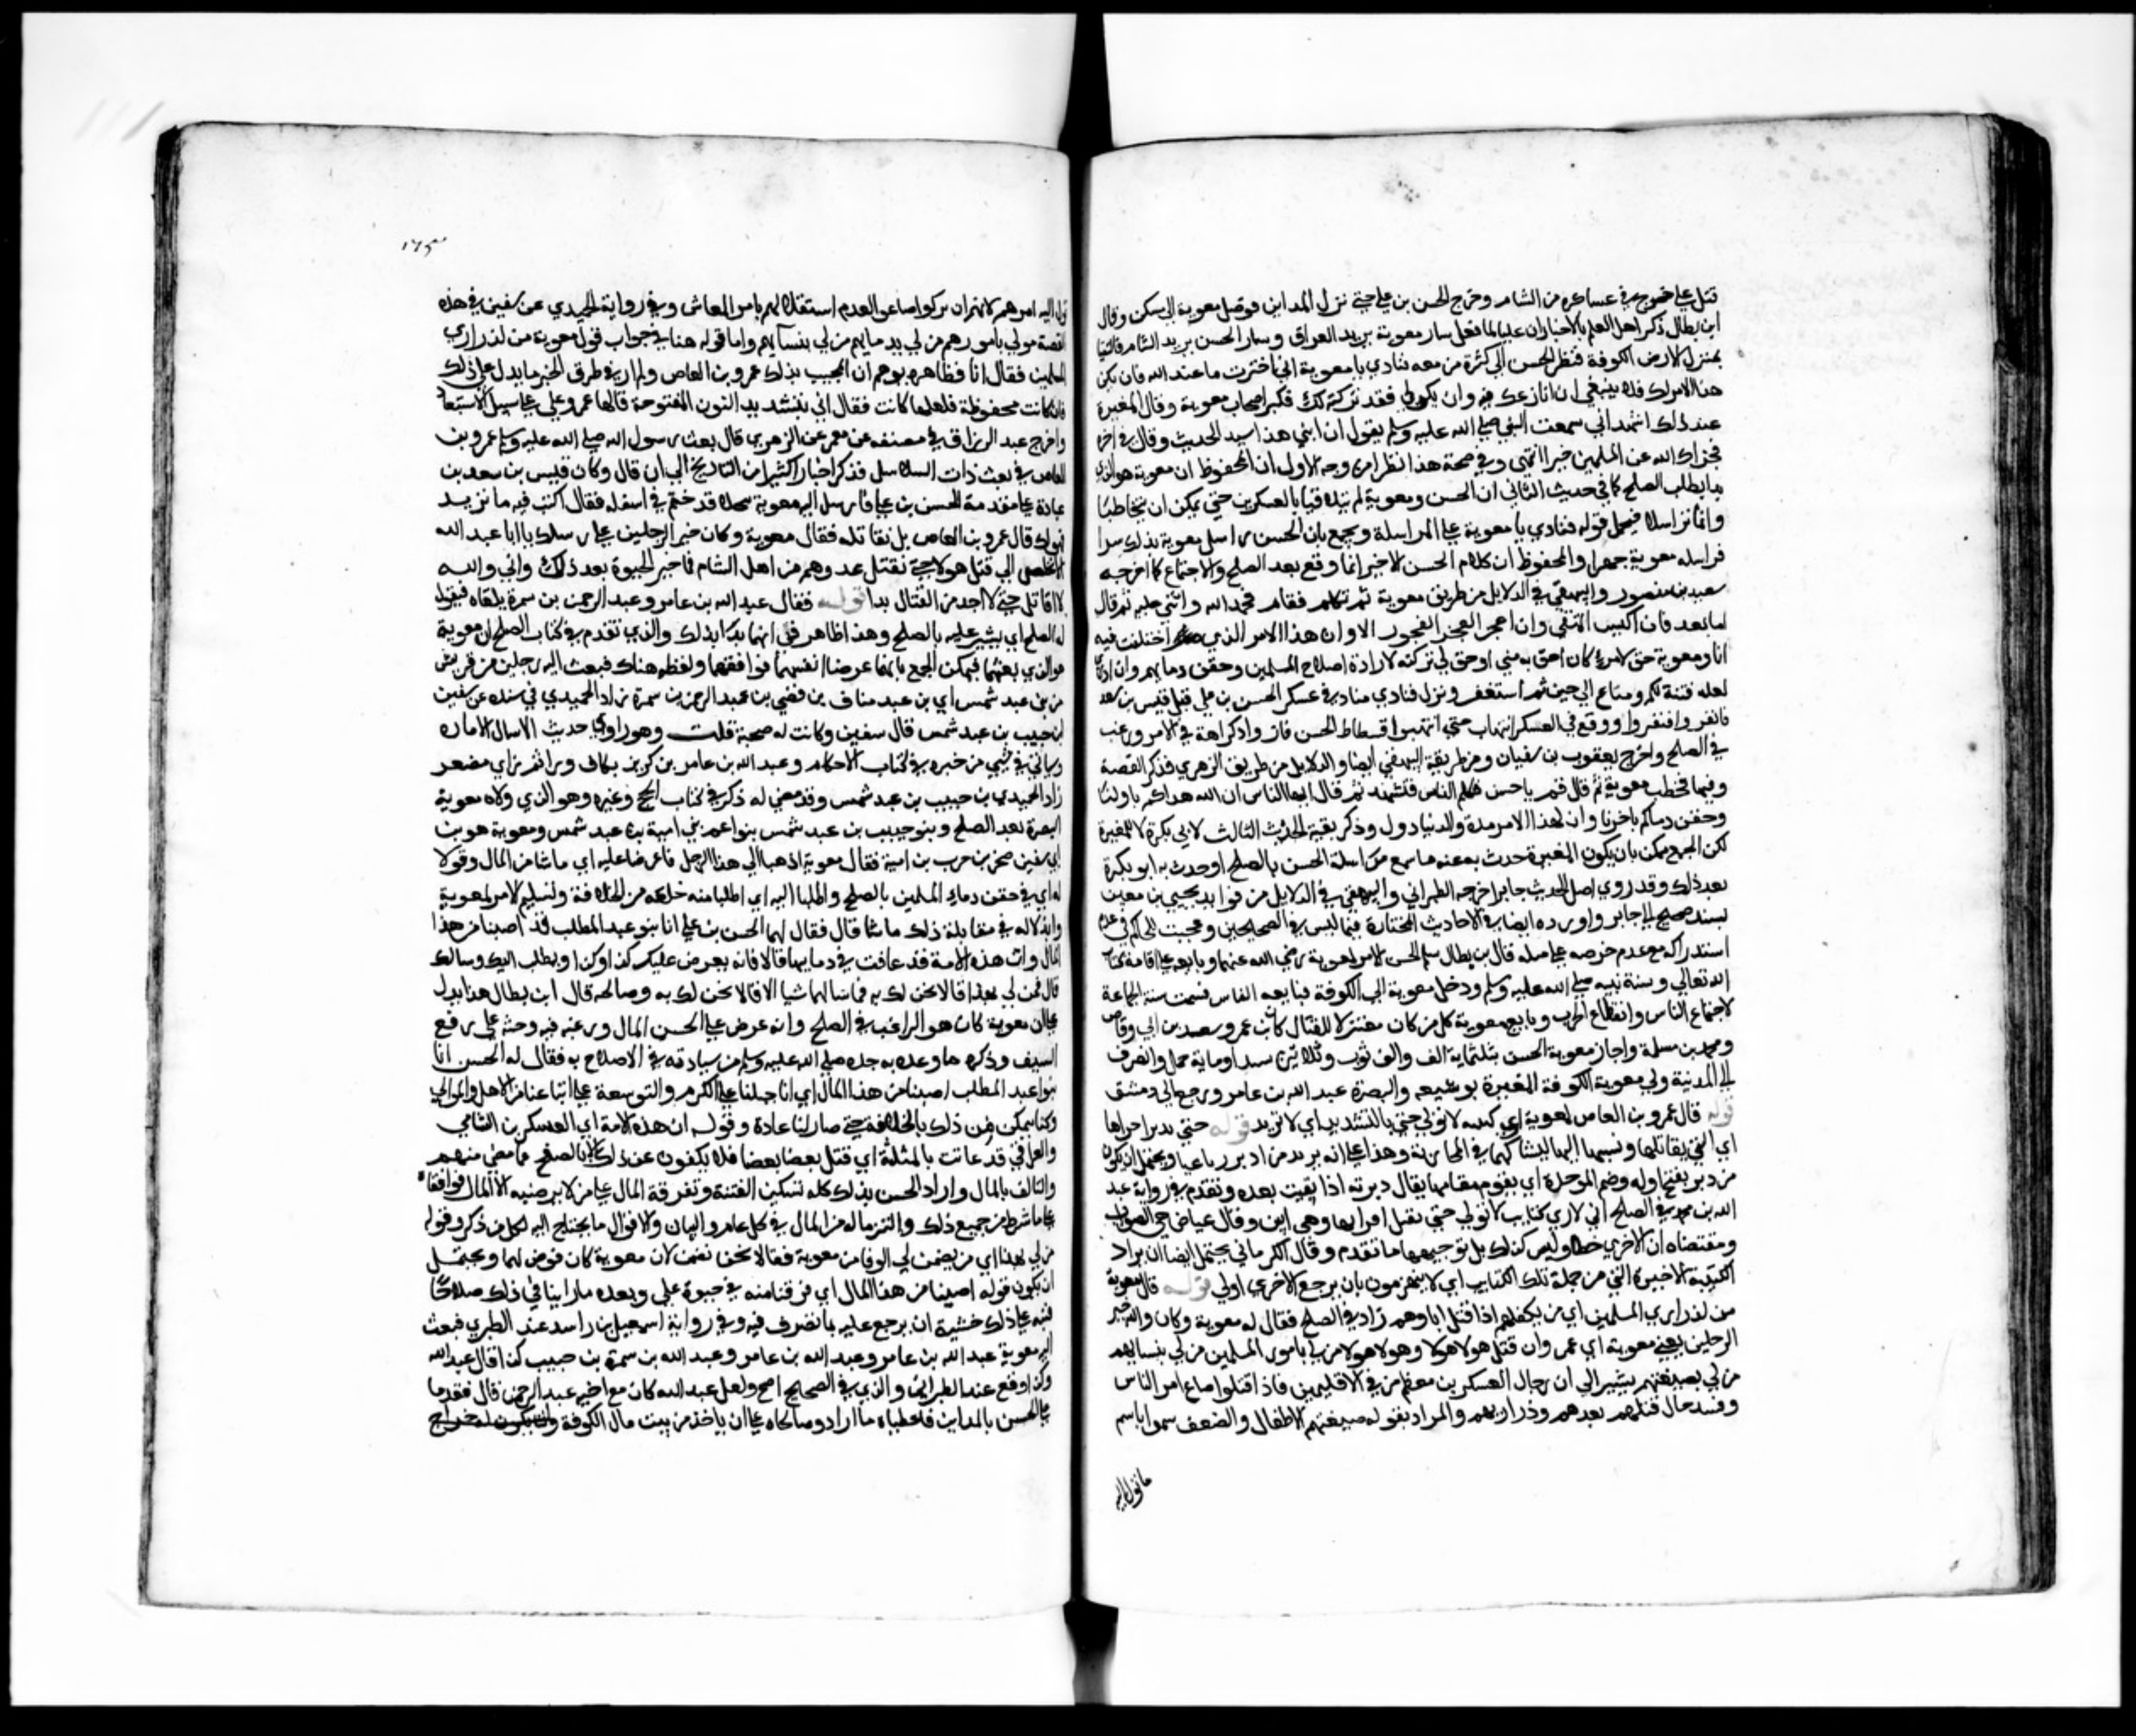 قتل علي خرج في عساكره من الشام وخرج الحسن بن علي حتى نزل المداين فوصل معوية الي مسكن وقال
ابن بطال ذكر اهل العلم بالاخبار ان عليا لما قتل سار معوية يريد العراق وسار الحسن يريد الشام فالتقيا
بمنزل الارض الكوفة فنظر الحسن الي كثرة من معه فنادي يا معوية اني اخترت ما عند الله فان يكن
هذا الامر لك فلا ينبغي ان انازعك فيه وان يكن لي فقد تركته لك فكبر اصحاب معوية وقال المغيرة
عند ذلك اشهد اني سمعت النبي صلي الله عليه وسلم يقول ان ابني هذا سيد الحديث وقال في اخره
فجزاك الله عن المسلمين خيرا انتهى وفي صحة هذا نظر من وجه الاول ان المحفوظ ان معوية هو الذي
بدا بطلب الصلح كما في حديث الثاني ان الحسن ومعوية لم يتلاقيا بالعسكرين حتي يمكن ان يتخاطبا
وانما تراسلا فيحمل قوله فنادي يا معوية علي المراسلة ويجمع بان الحسن راسل معوية بذلك سرا
فراسله معوية جهرا والمحفوظ ان كلام الحسن الاخير انما وقع بعد الصلح والاجتماع كما اخرجه
سعيد بن منصور والبيهقي في الدلايل من طريق معوية ثم تكلم فقام فحمد الله واثني عليه ثم قال
اما بعد فان اكيس التقي وان اعجز العجز الفجور الا وان هذا الامر الذي اختلفت فيه
انا ومعوية حق لامرئ كان احق به مني او حق لي تركته لارادة اصلاح المسلمين وحقن دمايهم وان ادري
لعله فتنة لكم ومتاع الي حين ثم استغفر ونزل فنادي مناد في عسكر الحسن بن علي قتل قيس بن سعد
فانفروا فنفروا ووقع في العسكر انتهاب حتي انتهبوا فسطاط الحسن فازداد كراهة في الامر ورغب
في الصلح واخرج يعقوب بن سفيان ومن طريقه البيهقي ايضا والدلايل من طريق الزهري فذكر القصة
وفيها فخطب معوية ثم قال قم يا حسن فكلم الناس فتشهد ثم قال ايها الناس ان الله هداكم باولنا
وحقن دماكم باخرنا وان لهذا الامر مدة والدنيا دول وذكر بقية الحديث الثالث لابي بكرة لا للمغيرة
لكن الجمع يمكن بان يكون المغيرة حدث به عنه ما سمع من اسلة الحسن بالصلح او حدث به ابو بكرة
بعد ذلك وقد روي اصل الحديث جابر اخرجه الطبراني والبيهقي في الدلايل من فوايد يحيي بن معين
بسند صحيح الي جابر واورده ايضا في الاحاديث المختارة فيما ليس في الصحيحين وعجبت للحاكم في عدم
استدراكه مع عدم حرصه علي مثله قال بن بطال سلم الحسن الامر لمعوية رضي الله عنهما وبايعه علي اقامة كتاب
الله تعالي وسنة نبيه صلي الله عليه وسلم ودخل معوية الي الكوفة فبايعه الناس فسميت سنة الجماعة
لاجتماع الناس وانقطاع الحرب وبايع معوية كل من كان معتزلا للقتال كابن عمر وسعد بن ابي وقاص
ومحمد بن مسلمة واجاز معوية الحسن بثلثماية الف والف ثوب وثلاثين عبدا وماية جمل وانصرف
الي المدينة وولي معوية الكوفة المغيرة بن شعبه والبصرة عبد الله بن عامر ورجع الي دمشق
قوله قال عمرو بن العاص لمعوية اري كتيبه لا تولي حتي بالتشديد اي لا تريد قوله حتي يدبر اخراها
اي التي يقابلها ونسبها اليها لتشاركهما في المحاربة وهذا علي انه يريد من ادبر رباعيا ويحتمل ان يكون
من دبر بفتح اوله وضم الموحدة اي يقوم مقامها يقال دبرته اذا بقيت بعده وتقدم في رواية عبد
الله بن محمد في الصلح اني لاري كتايب لا تولي حتي تقتل اقرانها وهي ابين وقال عياض هي الصواب
ومقتضاه ان الاخري خطا وليس كذلك بل توجيهها ما تقدم وقال الكرماني يحتمل ايضا ان يراد
الكتيبة الاخيرة التي من جملة تلك الكتايب اي لا ينهزمون بان يرجع الاخري اولي قوله قال معوية
من لذراري المسلمين اي من يكفلهم اذا قتل اباوهم زاد في الصلح فقال له معوية وكان والله خير
الرجلين يعني معوية اي عمرو ان قتل هولا هولا وهولا هولا من لي بامور المسلمين من لي بنسايهم
من لي بضيعتهم يشير الي ان رجال العسكرين معظم من في الاقليمين فاذا قتلوا ضاع امر الناس
وفسد حال قتلهم بعدهم وذراريهم والمراد بقوله ضيعتهم الاطفال والضعفا سموا باسم
ما تول اليه
١٢٥
تول اليه امرهم لانهم ان تركوا ضاعوا لعدم استقلالهم بامر المعاش وفي رواية الحميدي عن سفين في هذه
القصة من لي بامورهم من لي بدمايهم من لي بنسآيهم واما قوله هنا في جواب قول معوية من لذراري
المسلمين فقال انا فظاهره يوهم ان المجيب بذلك عمرو بن العاص ولم ار في طرق الخبر ما يدل علي ذلك
فان كانت محفوظة فلعلها كانت فقال اني بتشديد النون المفتوحة قالها عمرو علي سبيل الاستبعاد
واخرج عبد الرزاق في مصنفه عن معمر عن الزهري قال بعث رسول الله صلي الله عليه وسلم عمرو بن
العاص في بعث ذات السلاسل فذكر اخبارا كثيرا من التاريخ الي ان قال وكان قيس بن سعد بن
عبادة علي مقدمة الحسن بن علي فارسل اليه معوية سجلا قد ختم في اسفله فقال اكتب فيه ما تريد
فهو لك قال عمرو بن العاص بل نقاتله فقال معوية وكان خير الرجلين علي رسلك يا ابا عبد الله
لا تخلص الي قتل هولا حتي تقتل عدوهم من اهل الشام فما خير الحيوة بعد ذلك واني والله
لا اقاتل حتي لا اجد من القتال بدا قوله فقال عبد الله بن عامر وعبد الرحمن بن سمرة يلقاه فيقول
له الصلح اي يشير عليه بالصلح وهذا ظاهر في انهما بدآ بذلك والذي تقدم في كتاب الصلح ان معوية
هو الذي بعثهما فيمكن الجمع بانهما عرضا انفسهما فوافقهما ولفظه هناك فبعث اليه رجلين من قريش
من بني عبد شمس اي بن عبد مناف بن قصي بن عبد الرحمن بن سمرة زاد الحميدي في مسنده عن سفين
ابن حبيب بن عبد شمس قال سفين وكانت له صحبة قلت وهو راوي حديث لا تسال الاماره
وياتي في شيي من خبره في كتاب الاحكام وعبد الله بن عامر بن كريز بكاف وراء ثم زاي مصغر
زاد الحميدي بن حبيب بن عبد شمس وقد مضي له ذكر في كتاب الحج وغيره وهو الذي ولاه معوية
البصرة بعد الصلح وبنو حبيب بن عبد شمس بنو اعم بني امية بن عبد شمس ومعوية هو بن
ابي سفين صخر بن حرب بن امية فقال معوية اذهبا الي هذا الرجل فاعرضا عليه اي ما شا من المال وقولا
له اي في حقن دماء المسلمين بالصلح واطلبا اليه اي اطلبا منه خلعه من الخلافة وتسليم الامر لمعوية
وابذلا له في مقابلة ذلك ما شا قال فقال لهما الحسن بن علي انا بنو عبد المطلب قد اصبنا من هذا
المال وان هذه الامة قد عاثت في دمايها قالا فانه يعرض عليك كذا وكذا ويطلب اليك وسالك
قال فمن لي بهذا قالا نحن لك به فما سالهما شيا الا قالا نحن لك به وصالحه قال ابن بطال هذا يدل
علي ان معوية كان هو الراغب في الصلح وانه عرض علي الحسن المال ورغبه فيه وحثه علي رفع
السيف وذكره ما وعده به جده صلي الله عليه وسلم من سيادته في الاصلاح به فقال له الحسن انا
بنو عبد المطلب اصبنا من هذا المال اي انا جبلنا علي الكرم والتوسعة علي اتباعنا من الاهل والموالي
وكنا نتمكن من ذلك بالخلافة حتي صار لنا عادة وقوله ان هذه الامة اي العسكرين الشامي
والعراقي قد عاثت بالمثلثة اي قتل بعضها بعضا فلا يكفون عن ذلك الا بالصفح عما مضي منهم
والتالف بالمال واراد الحسن بذلك كله تسكين الفتنة وتفرقة المال علي من لا يرضيه الا المال فوافقاه
علي ما شرط من جميع ذلك والتزما له من المال في كل عام والثياب والاقوال ما يحتاج اليه لكل من ذكر وقوله
من لي بهذا اي من يضمن لي الوفا من معوية فقالا نحن نضمن لان معوية كان فوض لهما ويحتمل
ان يكون قوله اصبنا من هذا المال اي فرقنا منه في حيوة علي وبعده ما راينا في ذلك صلاحا
فنبه علي ذلك خشية ان يرجع عليه بما تصرف فيه وفي رواية اسمعيل بن راشد عند الطبري فبعث
اليه معوية عبد الله بن عامر وعبد الله بن عامر وعبد الله بن سمرة بن حبيب كذا قال عبد الله
وكذا وقع عند الطبراني والذي في الصحيح اصح ولعل عبد الله كان مع اخيه عبد الرحمن قال فقدما
علي الحسن بالمداين فاعطياه ما اراد وصالحاه علي ان ياخذ من بيت مال الكوفة